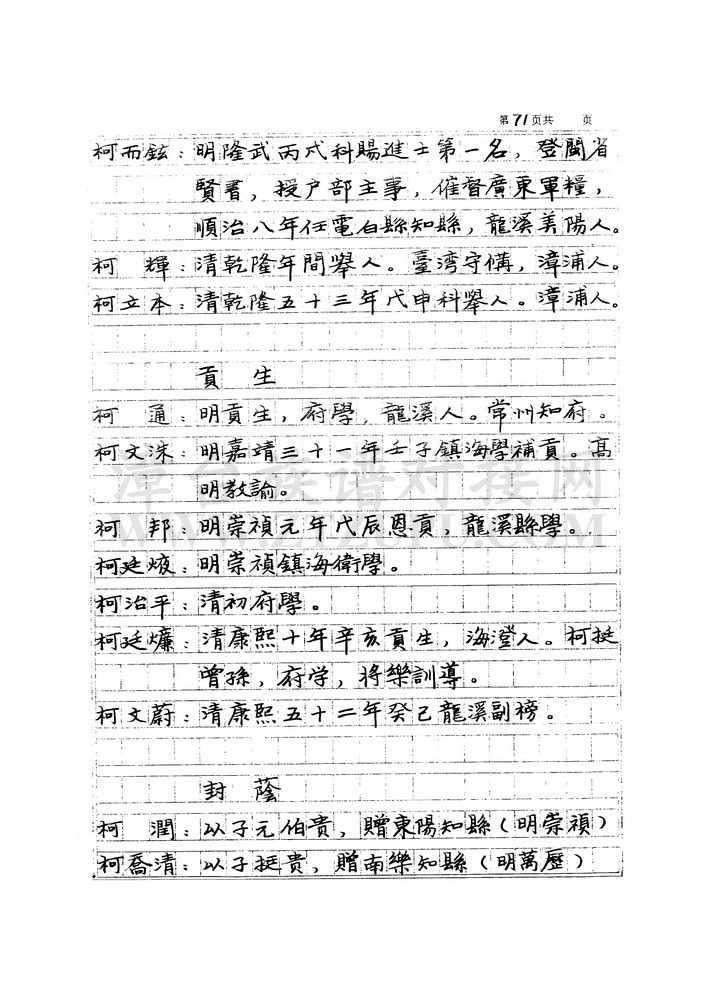 第71页共 页
柯而鉉：明隆武丙戌科賜進士第一名，登閩省
賢書，授户部主事，催督廣東軍糧，
順治八年任電白縣知縣，龍溪美陽人。
柯 輝：清乾隆年間舉人。臺湾守備，漳浦人。
柯立本：清乾隆五十三年戊申科舉人。漳浦人。
貢 生
柯 通：明貢生，府學，龍溪人。常州知府。
柯文洙：明嘉靖三十一年壬子鎮海學補貢。高
明教諭。
柯 邦：明崇禎元年戊辰恩貢，龍溪縣學。
柯廷㷡：明崇禎鎮海衛學。
柯治平：清初府學。
柯廷㷰：清康熙十年辛亥貢生，海澄人。柯挺
曾孫，府学，将樂訓導。
柯文蔚：清康熙五十二年癸己龍溪副榜。
封 蔭
柯 潤：以子元伯贵，贈東陽知縣（明崇禎）
柯喬清：以子挺贵，贈南樂知縣（明萬歷）
漳台族谱对接网
WWW.ZTZUPU.COM